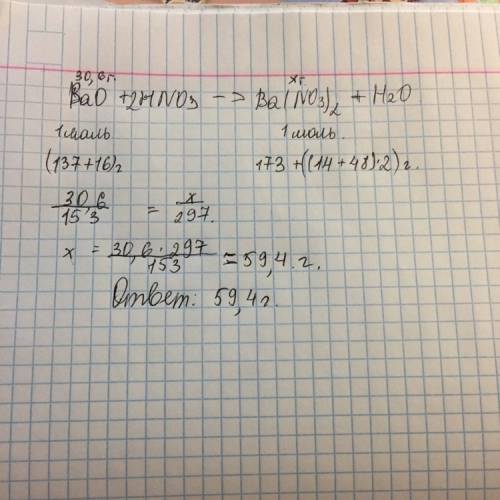 30,6г. xг.
BaO + 2HNO3 -> Ba(NO3)2 + H2O
1 моль 1 моль.
(137+16)г 173 + ((14+48)·2) г.
30,6 / 15,3 = x / 297.
x = 30,6 · 297 / 153 = 59,4 г.
Ответ: 59,4 г.